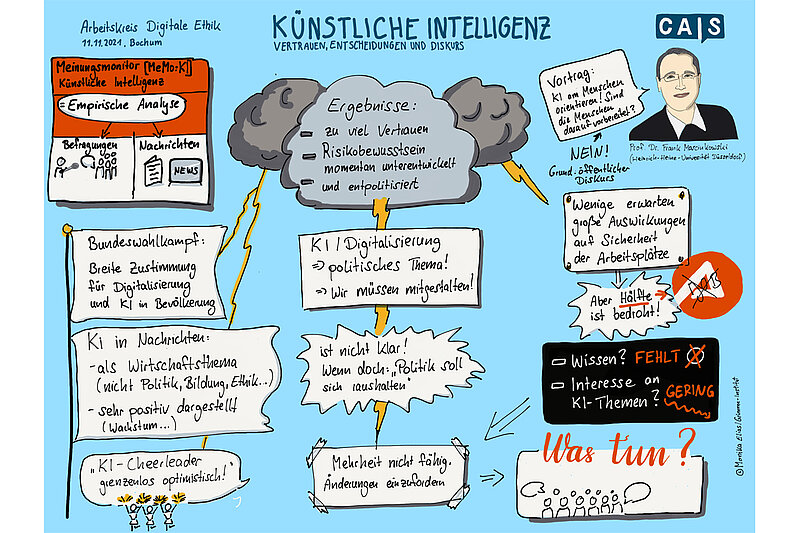 Arbeitskreis Digitale Ethik
11.11.2021, Bochum
KÜNSTLICHE INTELLIGENZ
VERTRAUEN, ENTSCHEIDUNGEN UND DISKURS
CAIS
Meinungsmonitor [MeMo:KI]
Künstliche Intelligenz
= Empirische Analyse
Befragungen
Nachrichten
NEWS
Ergebnisse:
zu viel Vertrauen
Risikobewusstsein
momentan unterentwickelt
und entpolitisiert
Vortrag:
KI am Menschen
orientieren! Sind
die Menschen
darauf vorbereitet?
Prof. Dr. Frank Marcinkowski
(Heinrich-Heine-Universität Düsseldorf)
NEIN!
Grund: öffentlicher
Diskurs
Wenige erwarten
große Auswirkungen
auf Sicherheit
der Arbeitsplätze
Aber Hälfte
ist bedroht!
JOB
Bundeswahlkampf:
Breite Zustimmung
für Digitalisierung
und KI in Bevölkerung
KI in Nachrichten:
- als Wirtschaftsthema
(nicht Politik, Bildung, Ethik...)
- sehr positiv dargestellt
(Wachstum...)
"KI-Cheerleader
grenzenlos optimistisch!"
KI / Digitalisierung
⇒ politisches Thema!
⇒ Wir müssen mitgestalten!
ist nicht klar!
Wenn doch: "Politik soll
sich raushalten"
Mehrheit nicht fähig,
Änderungen einzufordern
Wissen? FEHLT
Interesse an
KI-Themen? GERING
Was tun?
©Monika Elias/Grimme-Institut